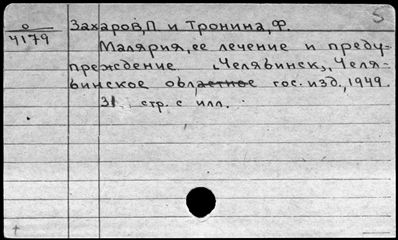 S
о
4179
Захаров, П. и Тронина, Ф.
Малярия, ее лечение и преду-
преждение Челябинск, Челя-
бинское областное гос. изд., 1949.
31 стр. с илл.